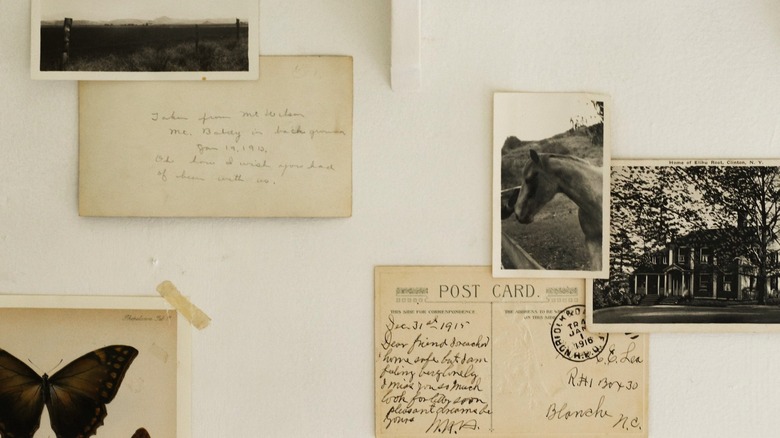 Taken from Mt. Wilson
Mt. Baldy in background
Jan 19, 1913,
Oh how I wish you had
of been with us.
Home of Elihu Root, Clinton, N. Y.
POST CARD.
THIS SIDE FOR CORRESPONDENCE
THE ADDRESS TO BE WRITTEN
ON THIS SIDE
Dec. 31st 1915
Dear friend I reached
home safe but am
feeling very lonely
I miss you so much
look for letter soon
pleasant dreams be
yours
C. E. Lea
R#1 Box 30
Blanche N.C.
JAN
1
1916